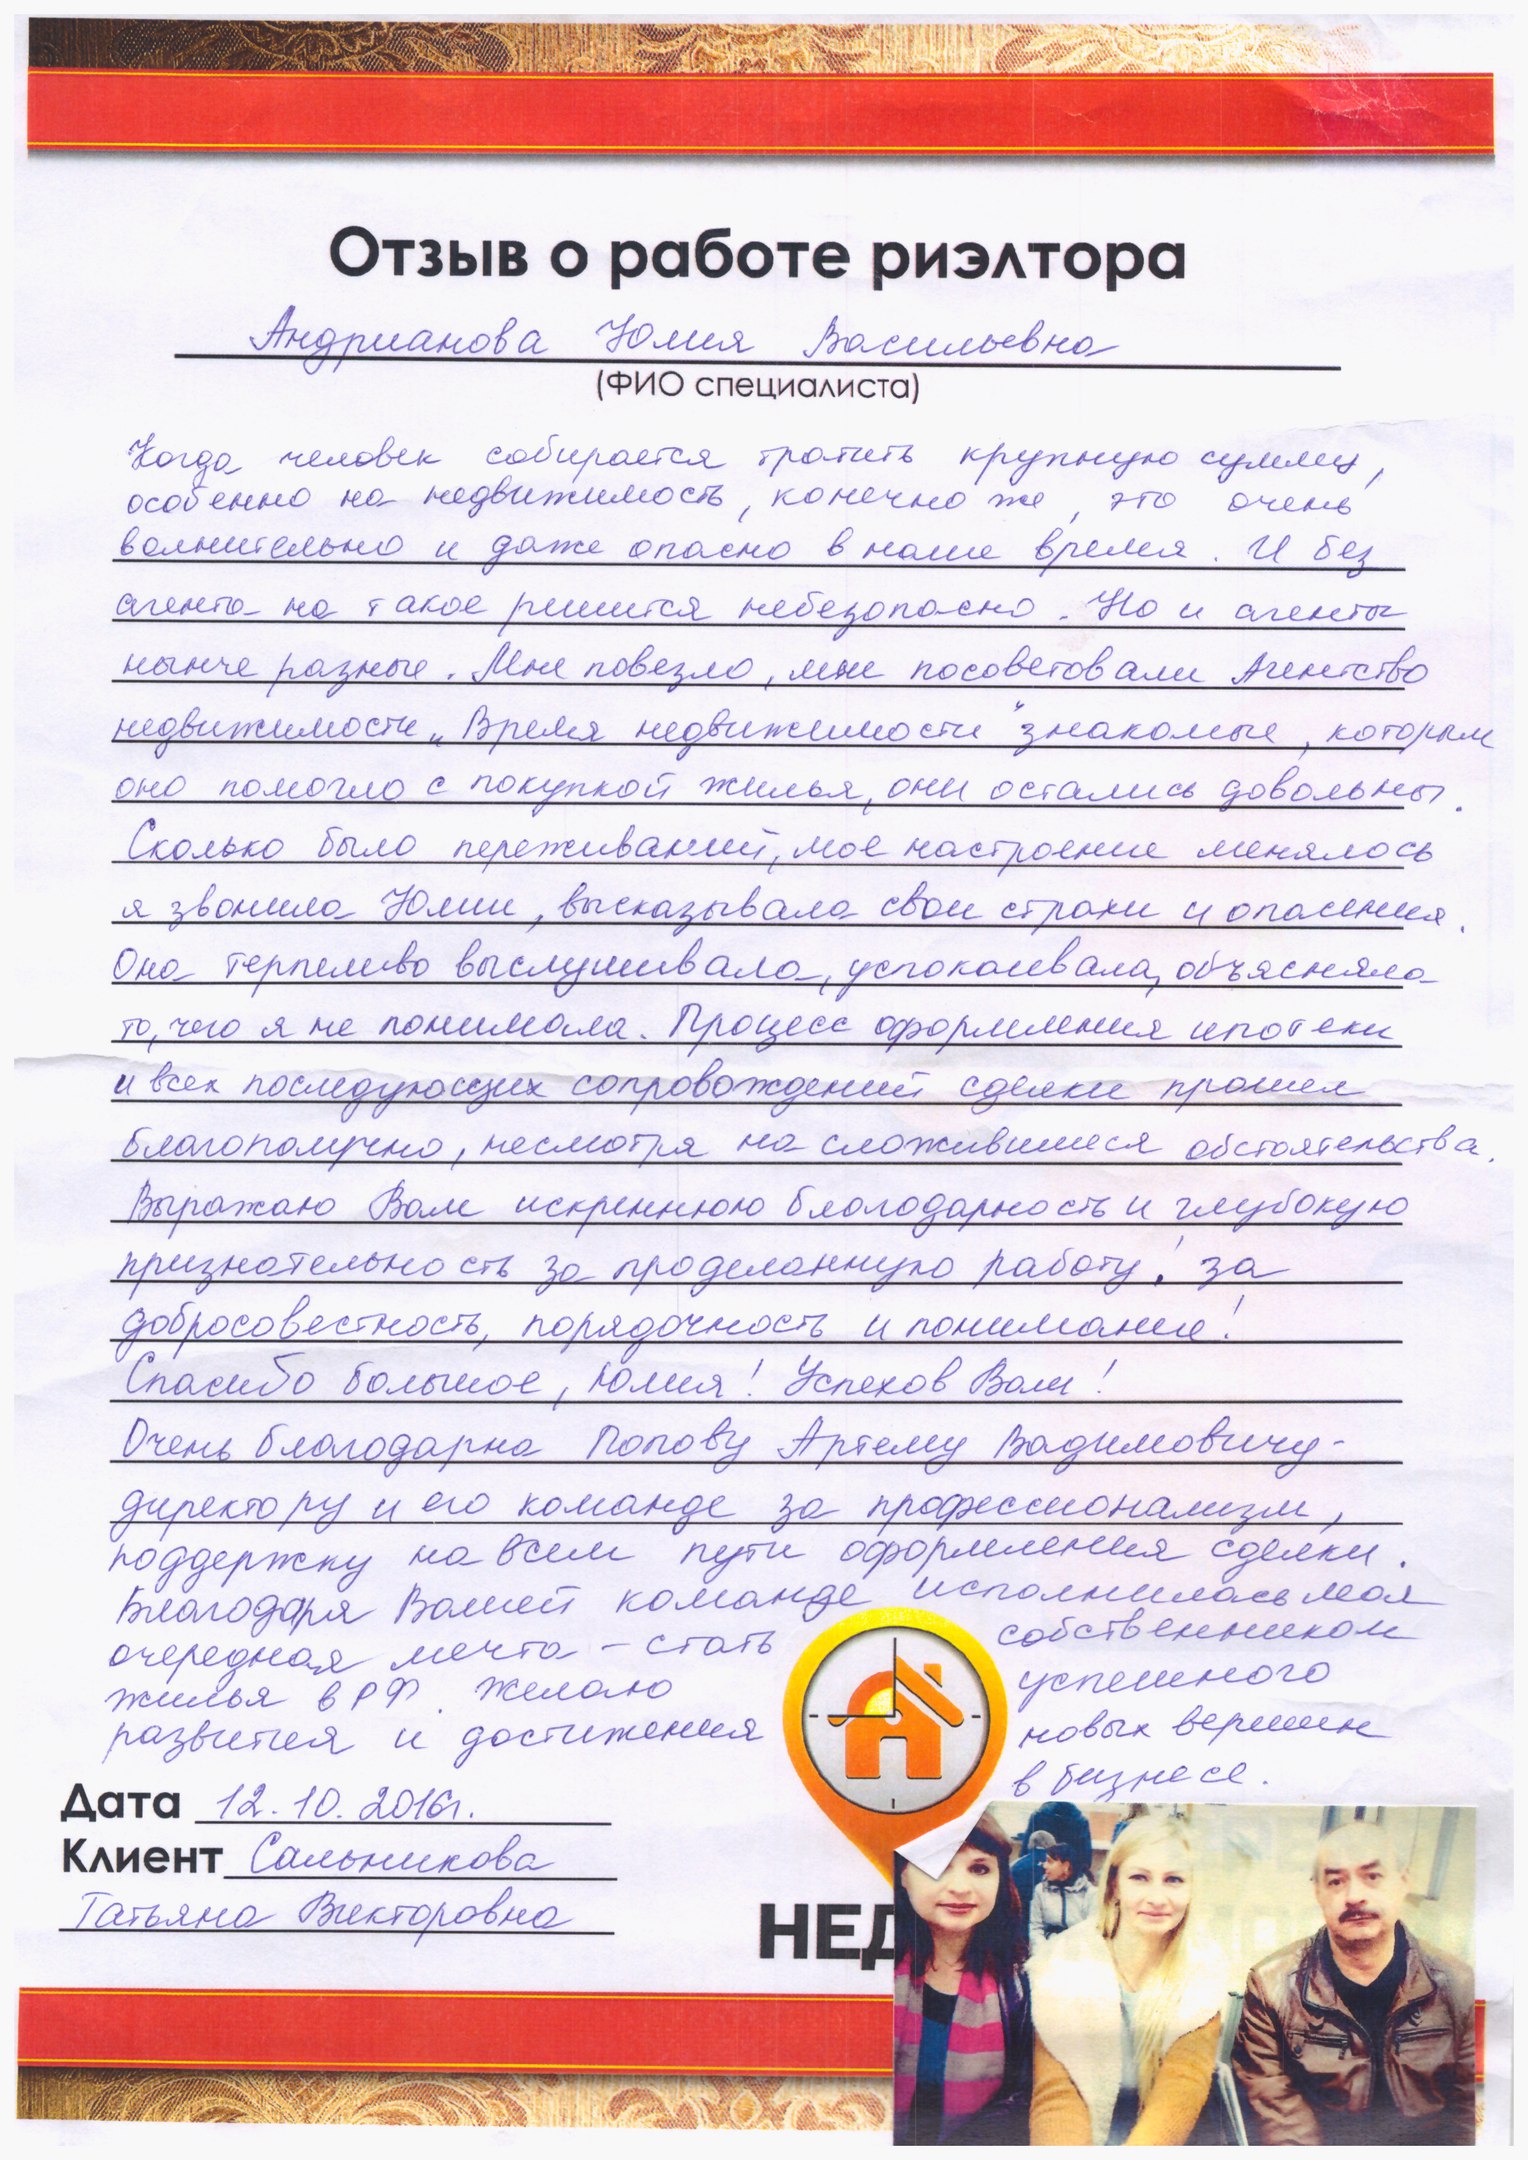 Отзыв о работе риэлтора
Андрианова Юлия Васильевна
(ФИО специалиста)
Когда человек собирается тратить крупную сумму,
особенно на недвижимость, конечно же, это очень
волнительно и даже опасно в наше время. И без
агента на такое решится небезопасно. Но и агенты
нынче разные. Мне повезло, мне посоветовали Агентство
недвижимости „Время недвижимости" знакомые, которым
оно помогло с покупкой жилья, они остались довольны.
Сколько было переживаний, мое настроение менялось
я звонила Юлии, высказывала свои страхи и опасения.
Она терпеливо выслушивала, успокаивала, объясняла
то, чего я не понимала. Процесс оформления ипотеки
и всех последующих сопровождений сделки прошел
благополучно, несмотря на сложившиеся обстоятельства.
Выражаю Вам искреннюю благодарность и глубокую
признательность за проделанную работу! за
добросовестность, порядочность и понимание!
Спасибо большое, Юлия! Успехов Вам!
Очень благодарна Попову Артему Вадимовичу-
директору и его команде за профессионализм,
поддержку на всем пути оформления сделки.
Благодаря Вашей команде исполнилась моя
очередная мечта – стать собственником
жилья в РФ. Желаю успешного
развития и достижения новых вершин
в бизнесе.
Дата 12.10.2016г.
Клиент Сальникова
Татьяна Викторовна
НЕД